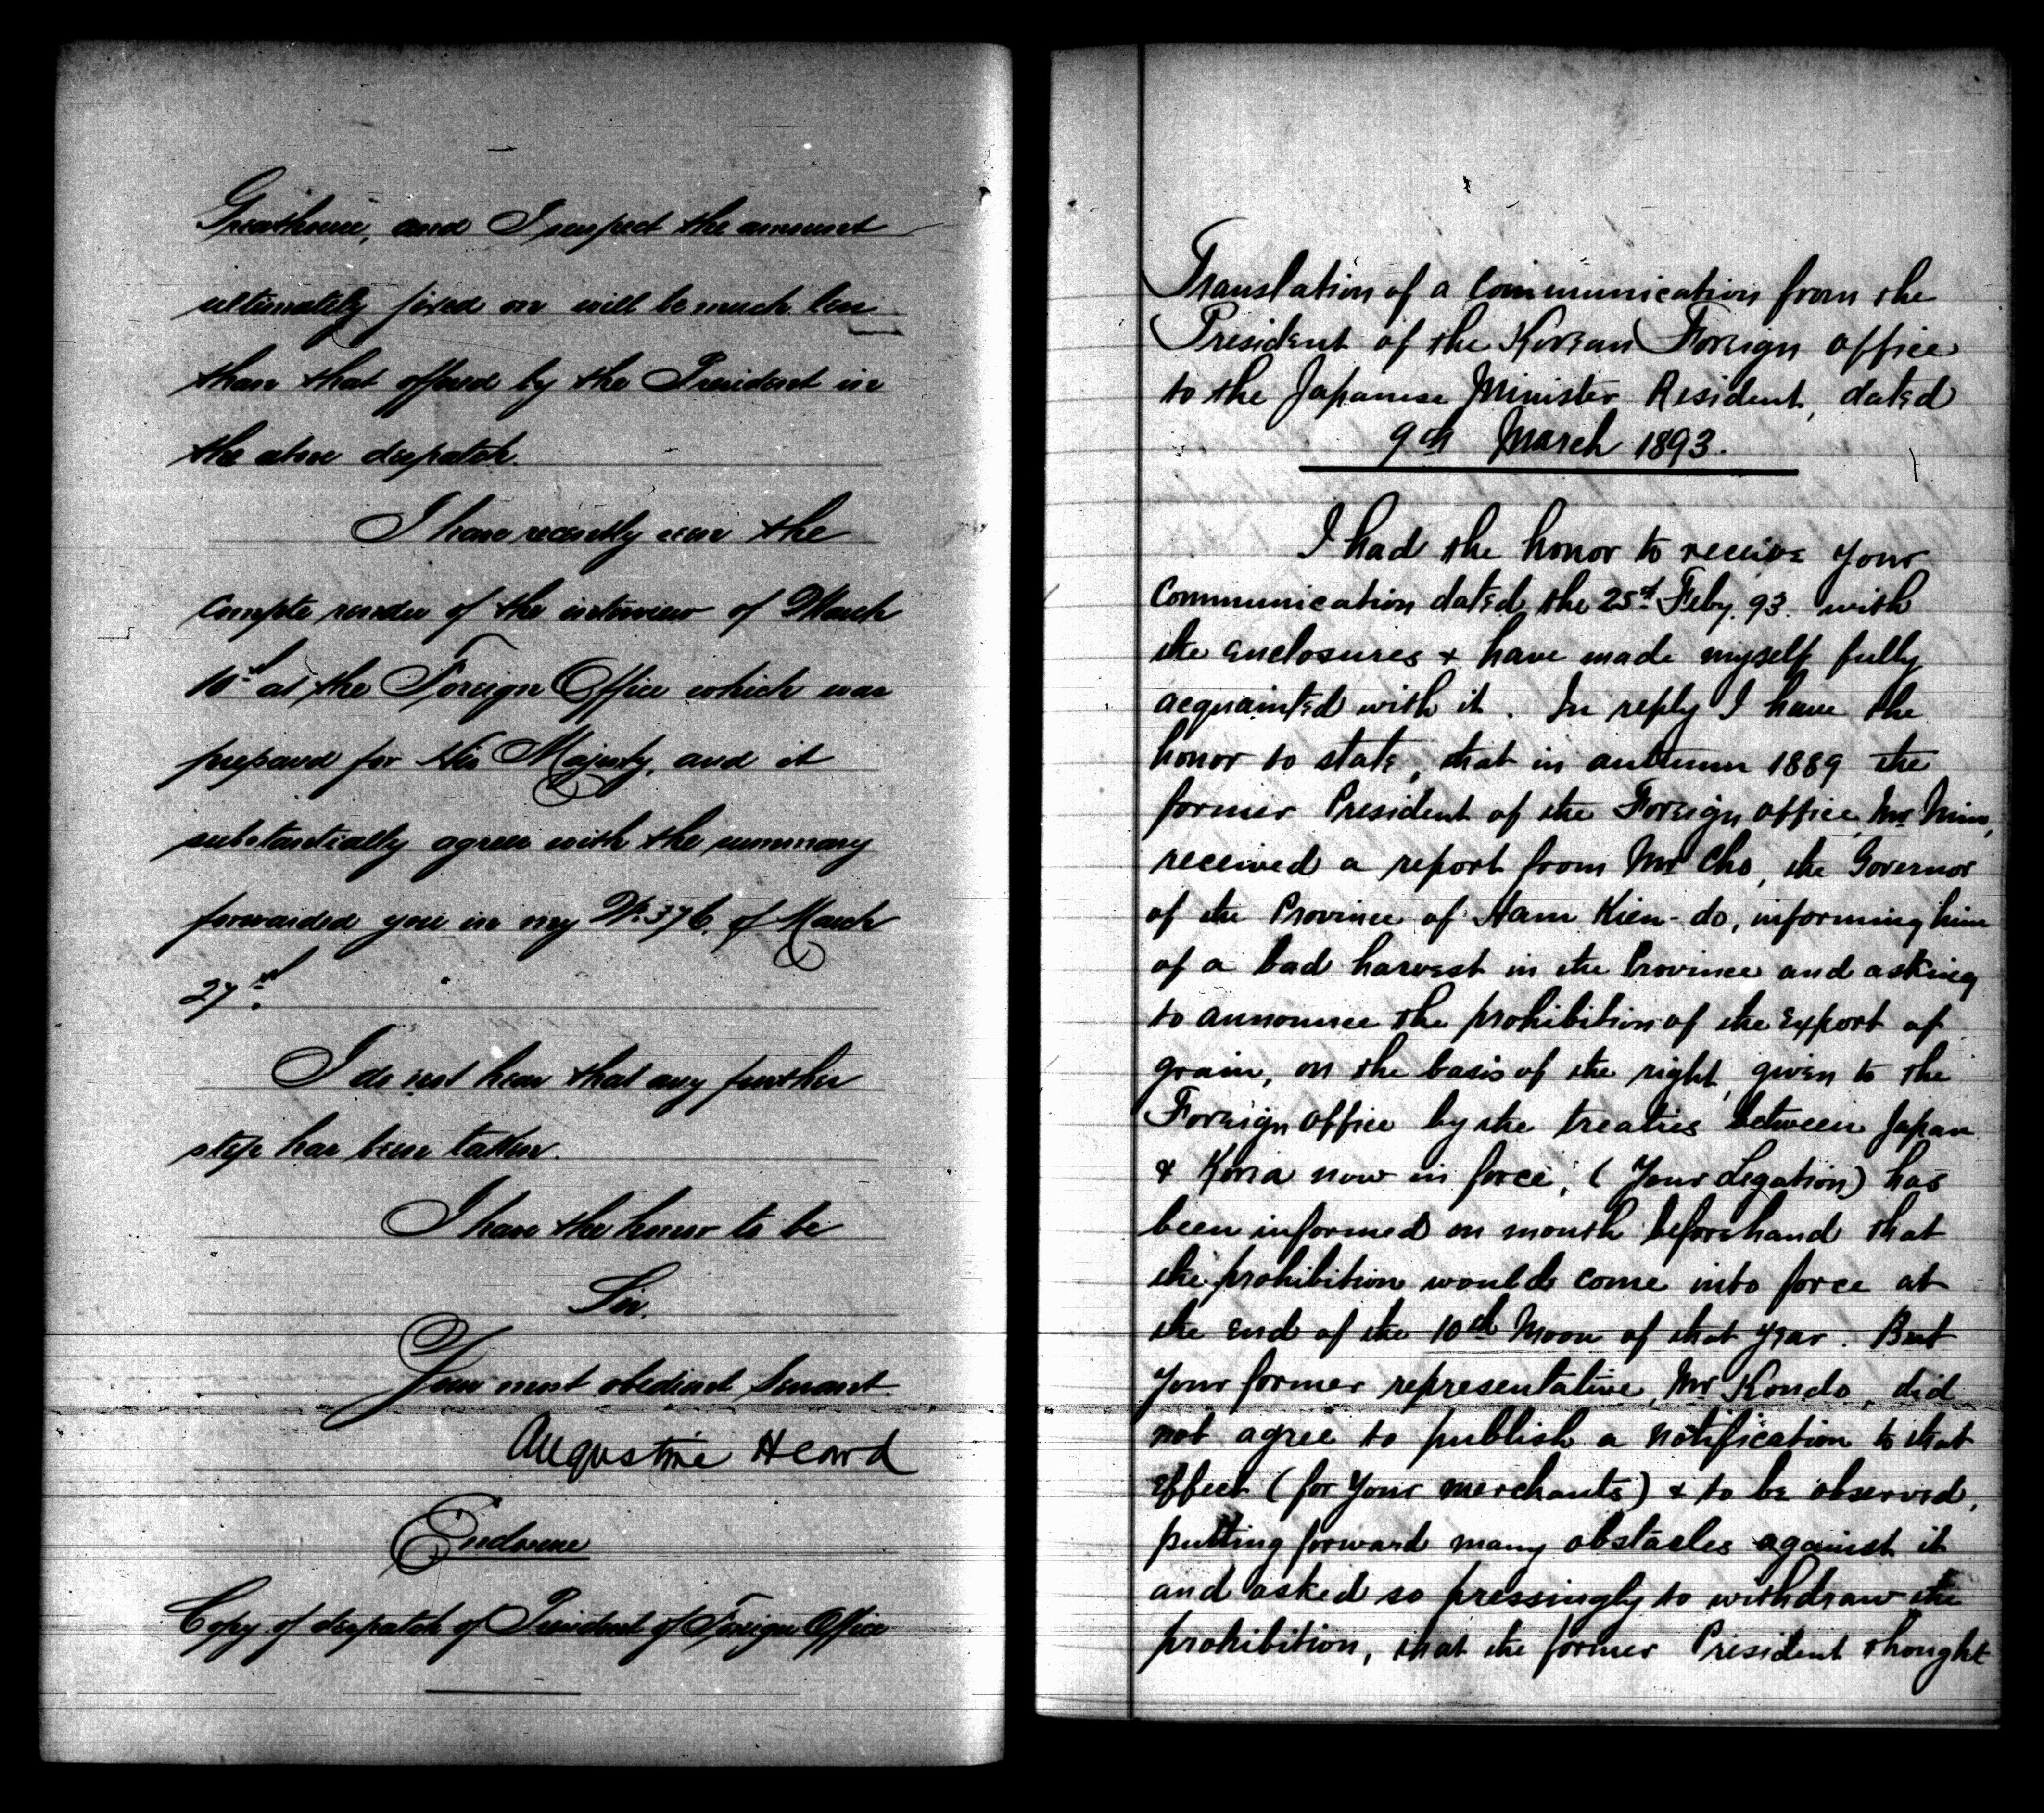 Greathouse, and I suspect the amount
ultimately fixed on will be much less
than that offered by the President in
the above despatch.
I have recently seen the
compte rendu of the interview of March
10th at the Foreign Office which was
prepared for His Majesty, and it
substantially agrees with the summary
forwarded you in my No. 376. of March
27th.
I do not hear that any further
step has been taken.
I have the honor to be
Sir,
Your most obedient Servant
Augustine Heard
Enclosure
Copy of despatch of President of Foreign Office
Translation of a Communication from the
President of the Korean Foreign office
to the Japanese Minister Resident, dated
9th March 1893.
I had the honor to receive your
Communication dated the 25th Feby. 93. with
the enclosures & have made myself fully
acquainted with it. In reply I have the
honor to state, that in autumn 1889 the
former President of the Foreign office, Mr Min,
received a report from Mr Cho, the Governor
of the Province of Ham Kien-do, informing him
of a bad harvest in the Province and asking
to announce the prohibition of the export of
grain, on the basis of the right given to the
Foreign office by the treaties between Japan
& Korea now in force, (Your Legation) has
been informed on month beforehand that
the prohibition would come into force at
the end of the 10th Moon of that year. But
your former representative, Mr Kondo, did
not agree to publish a notification to that
effect (for Your merchants) & to be observed,
putting forward many obstacles against it
and asked so pressingly to withdraw the
prohibition, that the former President thought